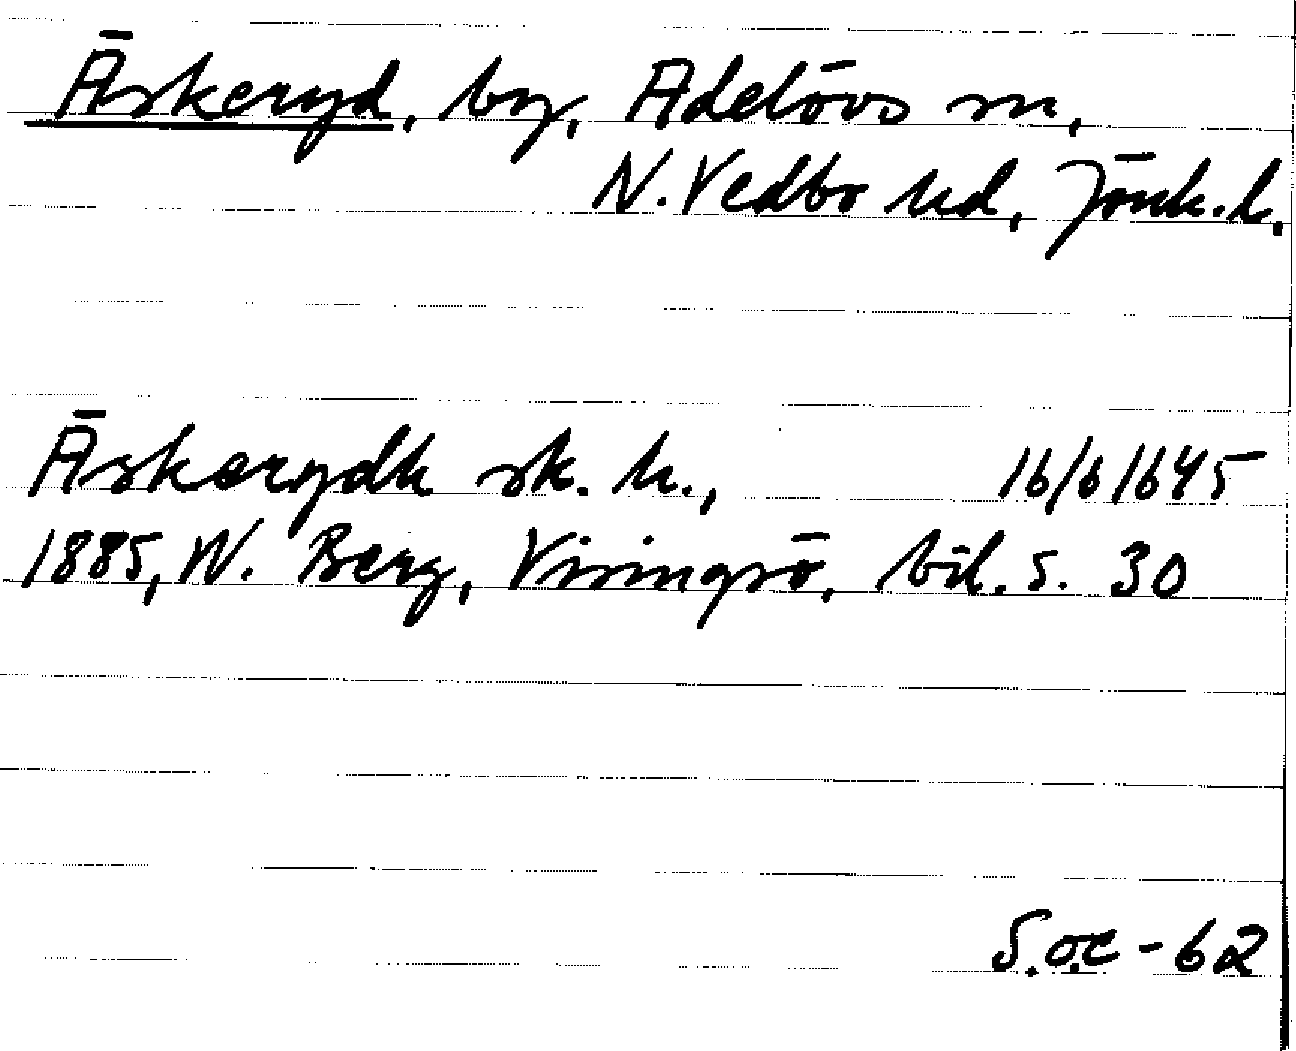 Äskeryd, by, Adelövs sn,
N. Vedbo hd, Jönk. l.
Äskerydh sk. h., 16/6 1645
1885, W. Berg, Visingsö, bil. s. 30
S.o.c - 62